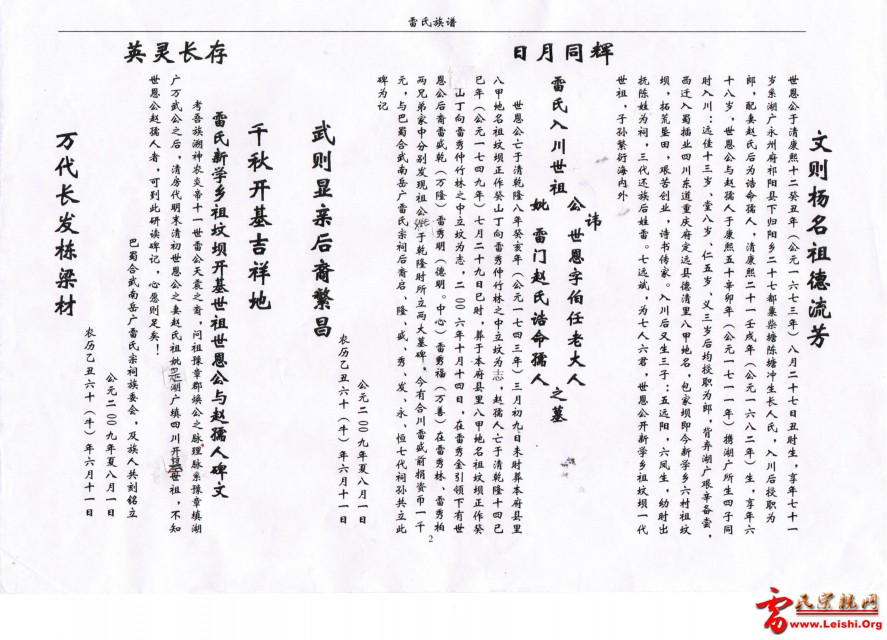 雷氏族谱
日月同辉
英灵长存
文则杨名祖德流芳
世恩公于清康熙十二癸丑年（公元一六七三年）八月二十七日丑时生，享年七十一
岁系湖广永州府祁阳县下归阳乡二十七都巢柴塘陈塘冲生长人氏，入川后授职为
郎，配妻赵氏后为诰命孺人，清康熙二十一壬戌年（公元一六八二年）生，享年六
十八岁，世恩公与赵孺人于康熙五十辛卯年（公元一七一一年）携湖广所生四子同
时入川：远佳十三岁、堂八岁、仁五岁、义三岁后均授职为郎，背弃湖广艰辛备尝，
西迁入蜀插业四川东道重庆府定远县德清里八甲地名，包家坝即今新学乡六村祖坟
坝，拓荒垦田，艰苦创业，诗书传家。入川后又生三子：五远阳，六凤生，幼时出
抚陈姓为祠，三代还族后姓雷。七远斌，为七人六君，世恩公开新学乡祖坟坝一代
世祖，子孙繁衍海内外
讳
雷氏入川世祖 公 世恩字伯任老大人 之墓
妣 雷门赵氏诰命孺人
世恩公亡于清乾隆八年癸亥年（公元一七四三年）三月初九日未时葬本府县里
八甲地名祖坟坝正作癸山丁向雷秀仲竹林之中立坟为志，赵孺人亡于清乾隆十四己
巳年（公元一七四九年）七月二十九日巳时，葬于本府县里八甲地名祖坟坝正作癸
山丁向雷秀仲竹林之中立坟为志，二00六年十月十四日，在雷秀金引领下有世
恩公后裔雷盛乾（万隆）雷秀明（德明。中心）雷秀福（万善）在雷秀林、雷秀柏
两兄弟家中分别发现祖公妣于乾隆时所立两大墓碑。今有合川雷盛前捐资币一千
元，与巴蜀合武南岳广雷氏宗祠后裔启、隆、盛、秀、发、永、恒七代祠孙共立此
碑为记
公元二00九年夏八月一日
农历乙丑六十（牛）年六月十一日
武则显亲后裔繁昌
千秋开基吉祥地
雷氏新学乡祖坟坝开基世祖世恩公与赵孺人碑文
考吾族溯神农炎帝十一世雷公天裳之裔，问祖豫章郡焕公之脉理脉系豫章填湖
广万武公之后，清房代明末清初世恩公之妻赵氏祖妣是湖广填四川开基世祖，不知
世恩公赵孺人者，可到此研读碑记，心愿则足矣！
巴蜀合武南岳广雷氏宗祠族委会，及族人共刻铭立
公元二00九年夏八月一日
农历乙丑六十（牛）年六月十一日
万代长发栋梁材
2
雷氏宗亲网
www.Leishi.Org